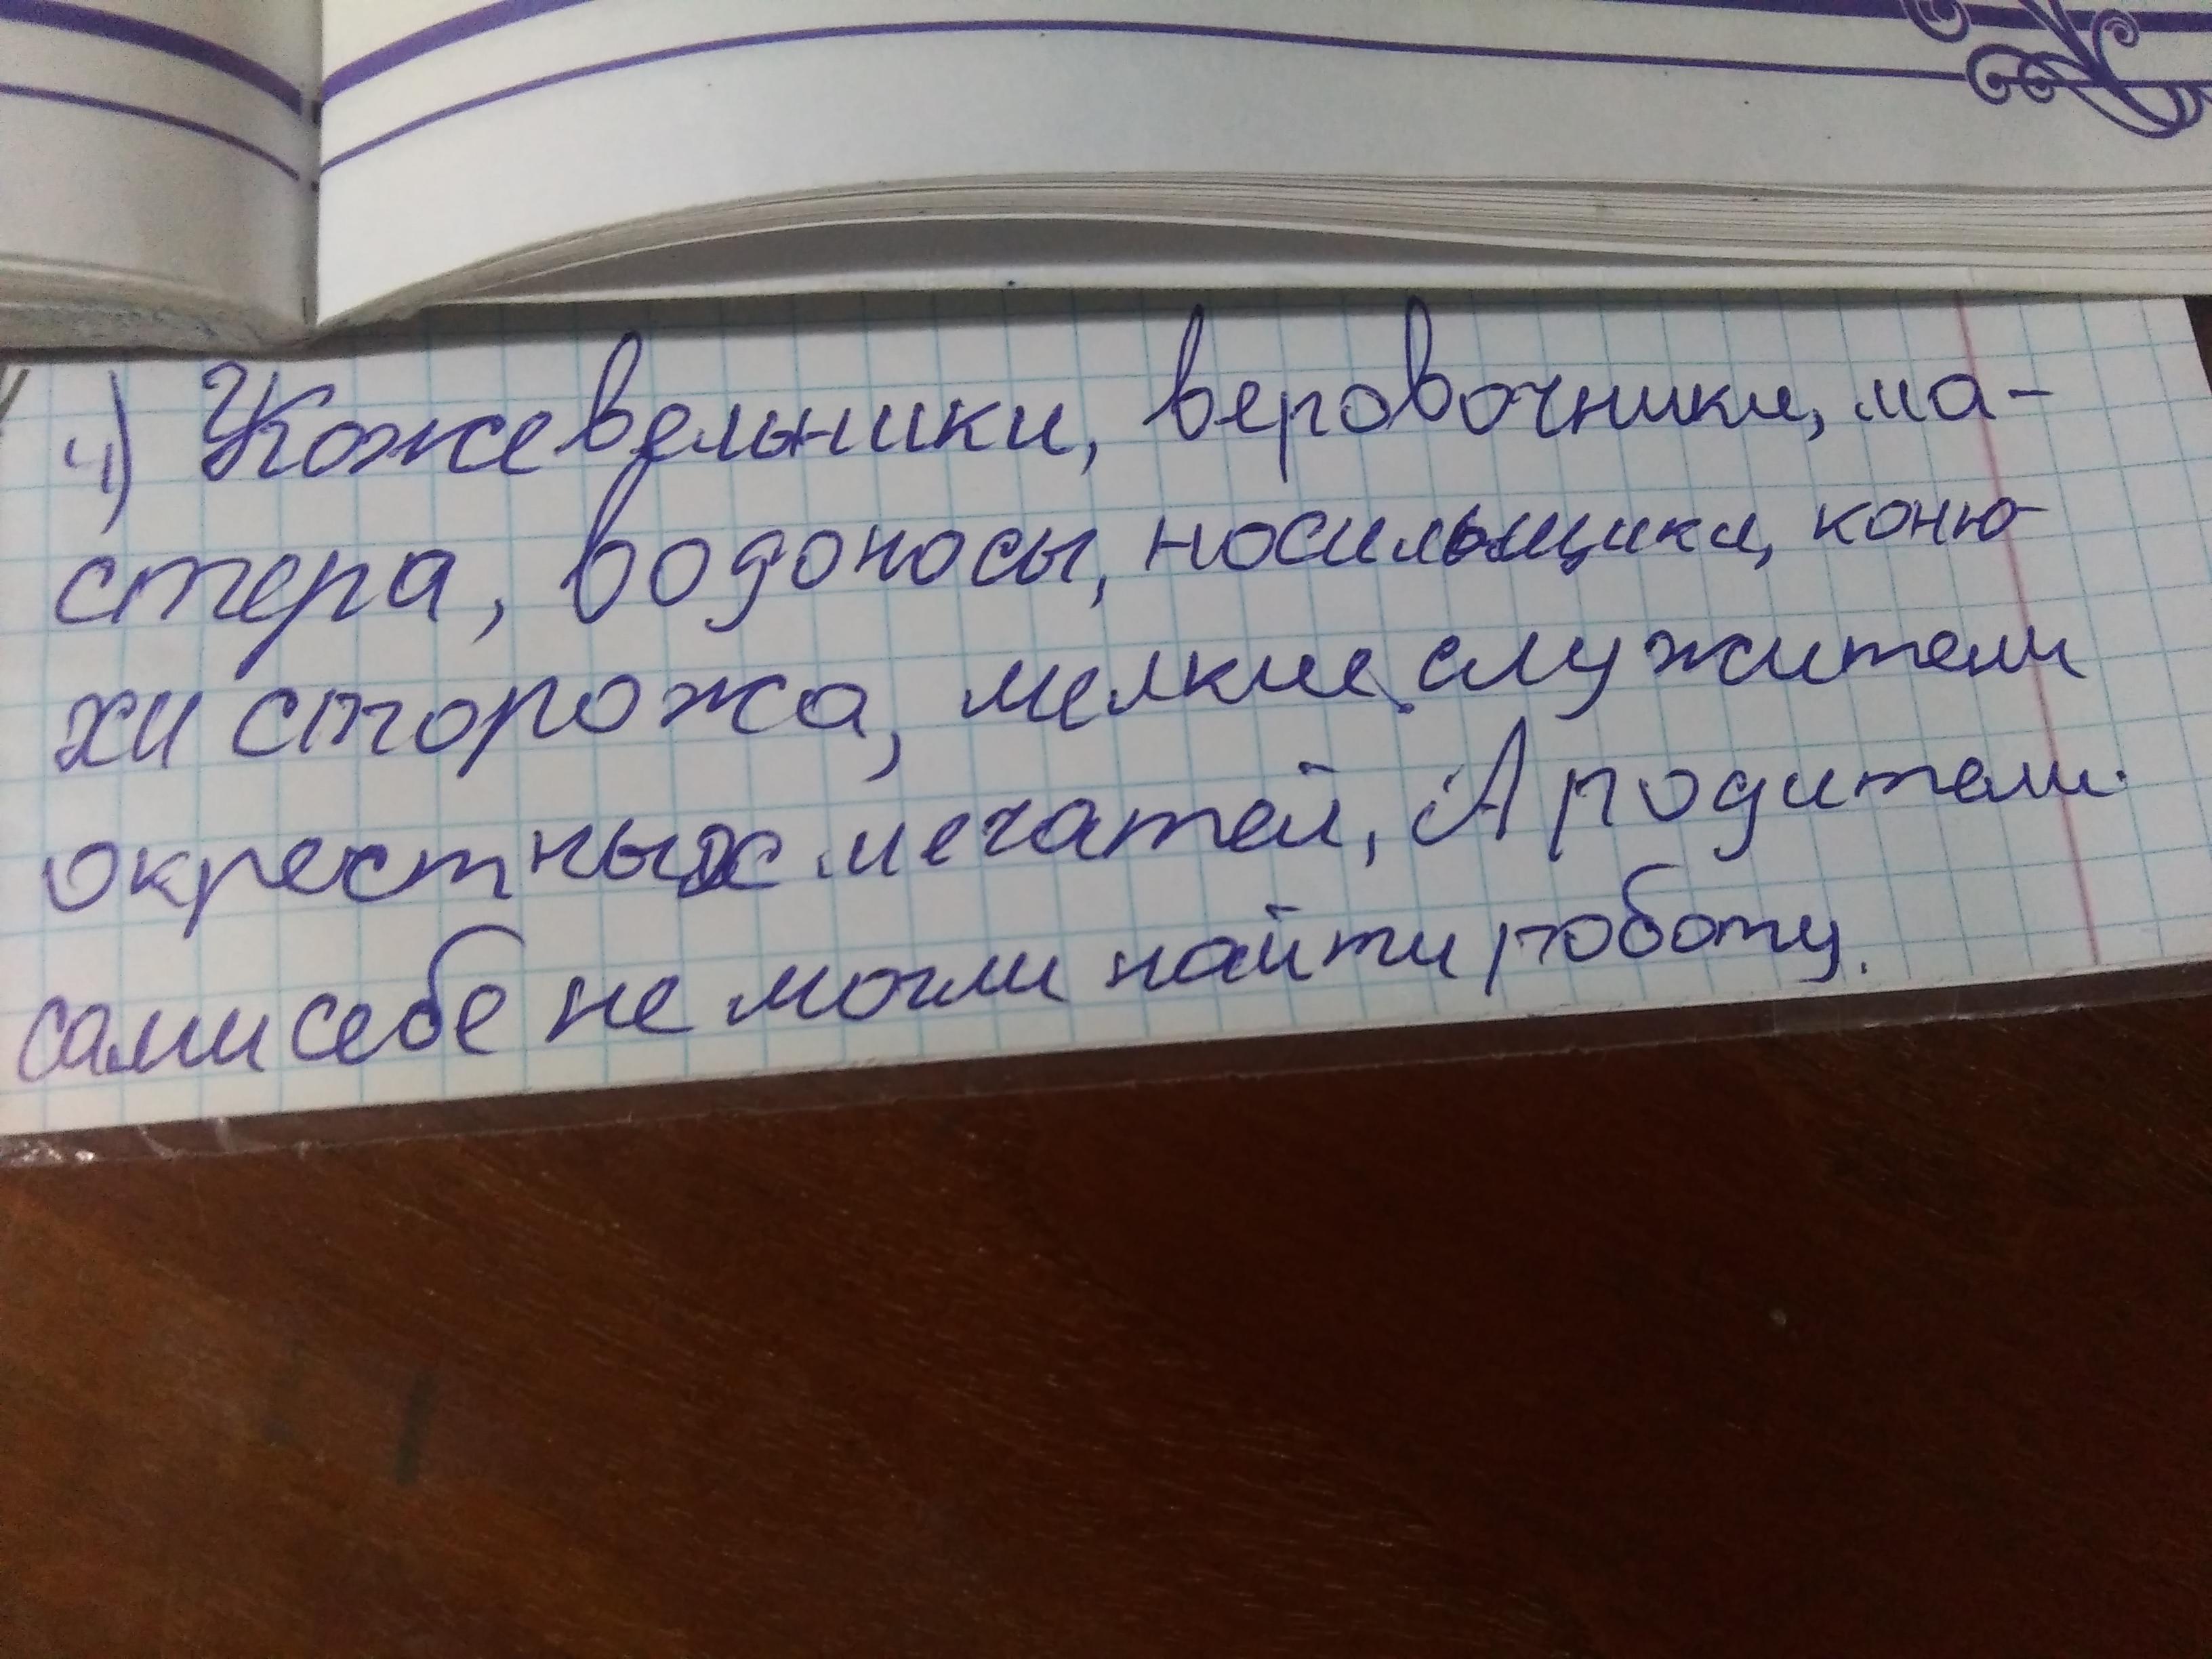 4) Кожевельники, веровочники, ма-
стера, водоносы, носильщики, коню-
хи сторожа, мелкие служители
окрестных мечатей, А родители
сами себе не могли найти роботу.